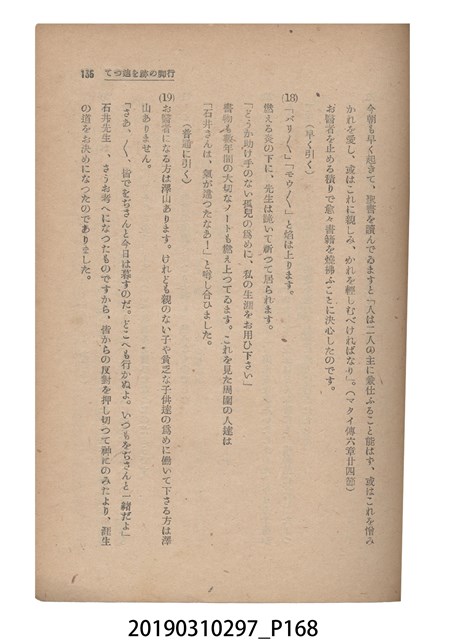 135 てつ辿を跡の御行
今朝も早く起きて、聖書を讀んでゐますと「人は二人の主に兼仕ふること能はず、或はこれを憎み
かれを愛し、或はこれに親しみ、かれを輕しむべければなり」。(マタイ傳六章廿四節)
お醫者を止める積りで愈々書籍を燒拂ふことに決心したのです。
(早く引く)
(18)
「バリ〱」「モウ〱」と焰は上ります。
燃える炎の下に、先生は跪いて祈つて居られます。
「どうか助け手のない孤兒の爲めに、私の生涯をお用ひ下さい」
書物も數年間の大切なノートも燃え上つてゐます。これを見た周圍の人達は
「石井さんは、氣が違つたなあ！」と囁し合ひました。
(普通に引く)
(19)
お醫者になる方は澤山あります。けれども親のない子や貧乏な子供達の爲めに働いて下さる方は澤
山ありません。
「さあ、〱、皆でをぢさんと今日は暮すのだ。どこへも行かぬよ。いつもをぢさんと一緒だよ」
石井先生は、さうお考へになつたものですから、皆からの反對を押し切つて神にのみたより、孤生
の道をお始めになつたのでありました。
20190310297_P168